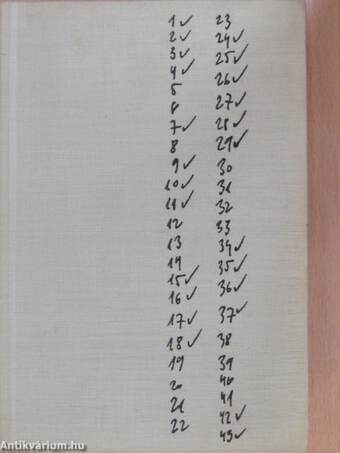 1 ✓
2 ✓
3 ✓
4 ✓
5
6
7 ✓
8
9 ✓
10 ✓
11 ✓
12
13
14
15 ✓
16 ✓
17 ✓
18 ✓
19
20
21
22
23
24 ✓
25 ✓
26 ✓
27 ✓
28 ✓
29 ✓
30
31
32
33
34 ✓
35 ✓
36 ✓
37 ✓
38
39
40
41
42 ✓
43 ✓
Antikvárium.hu